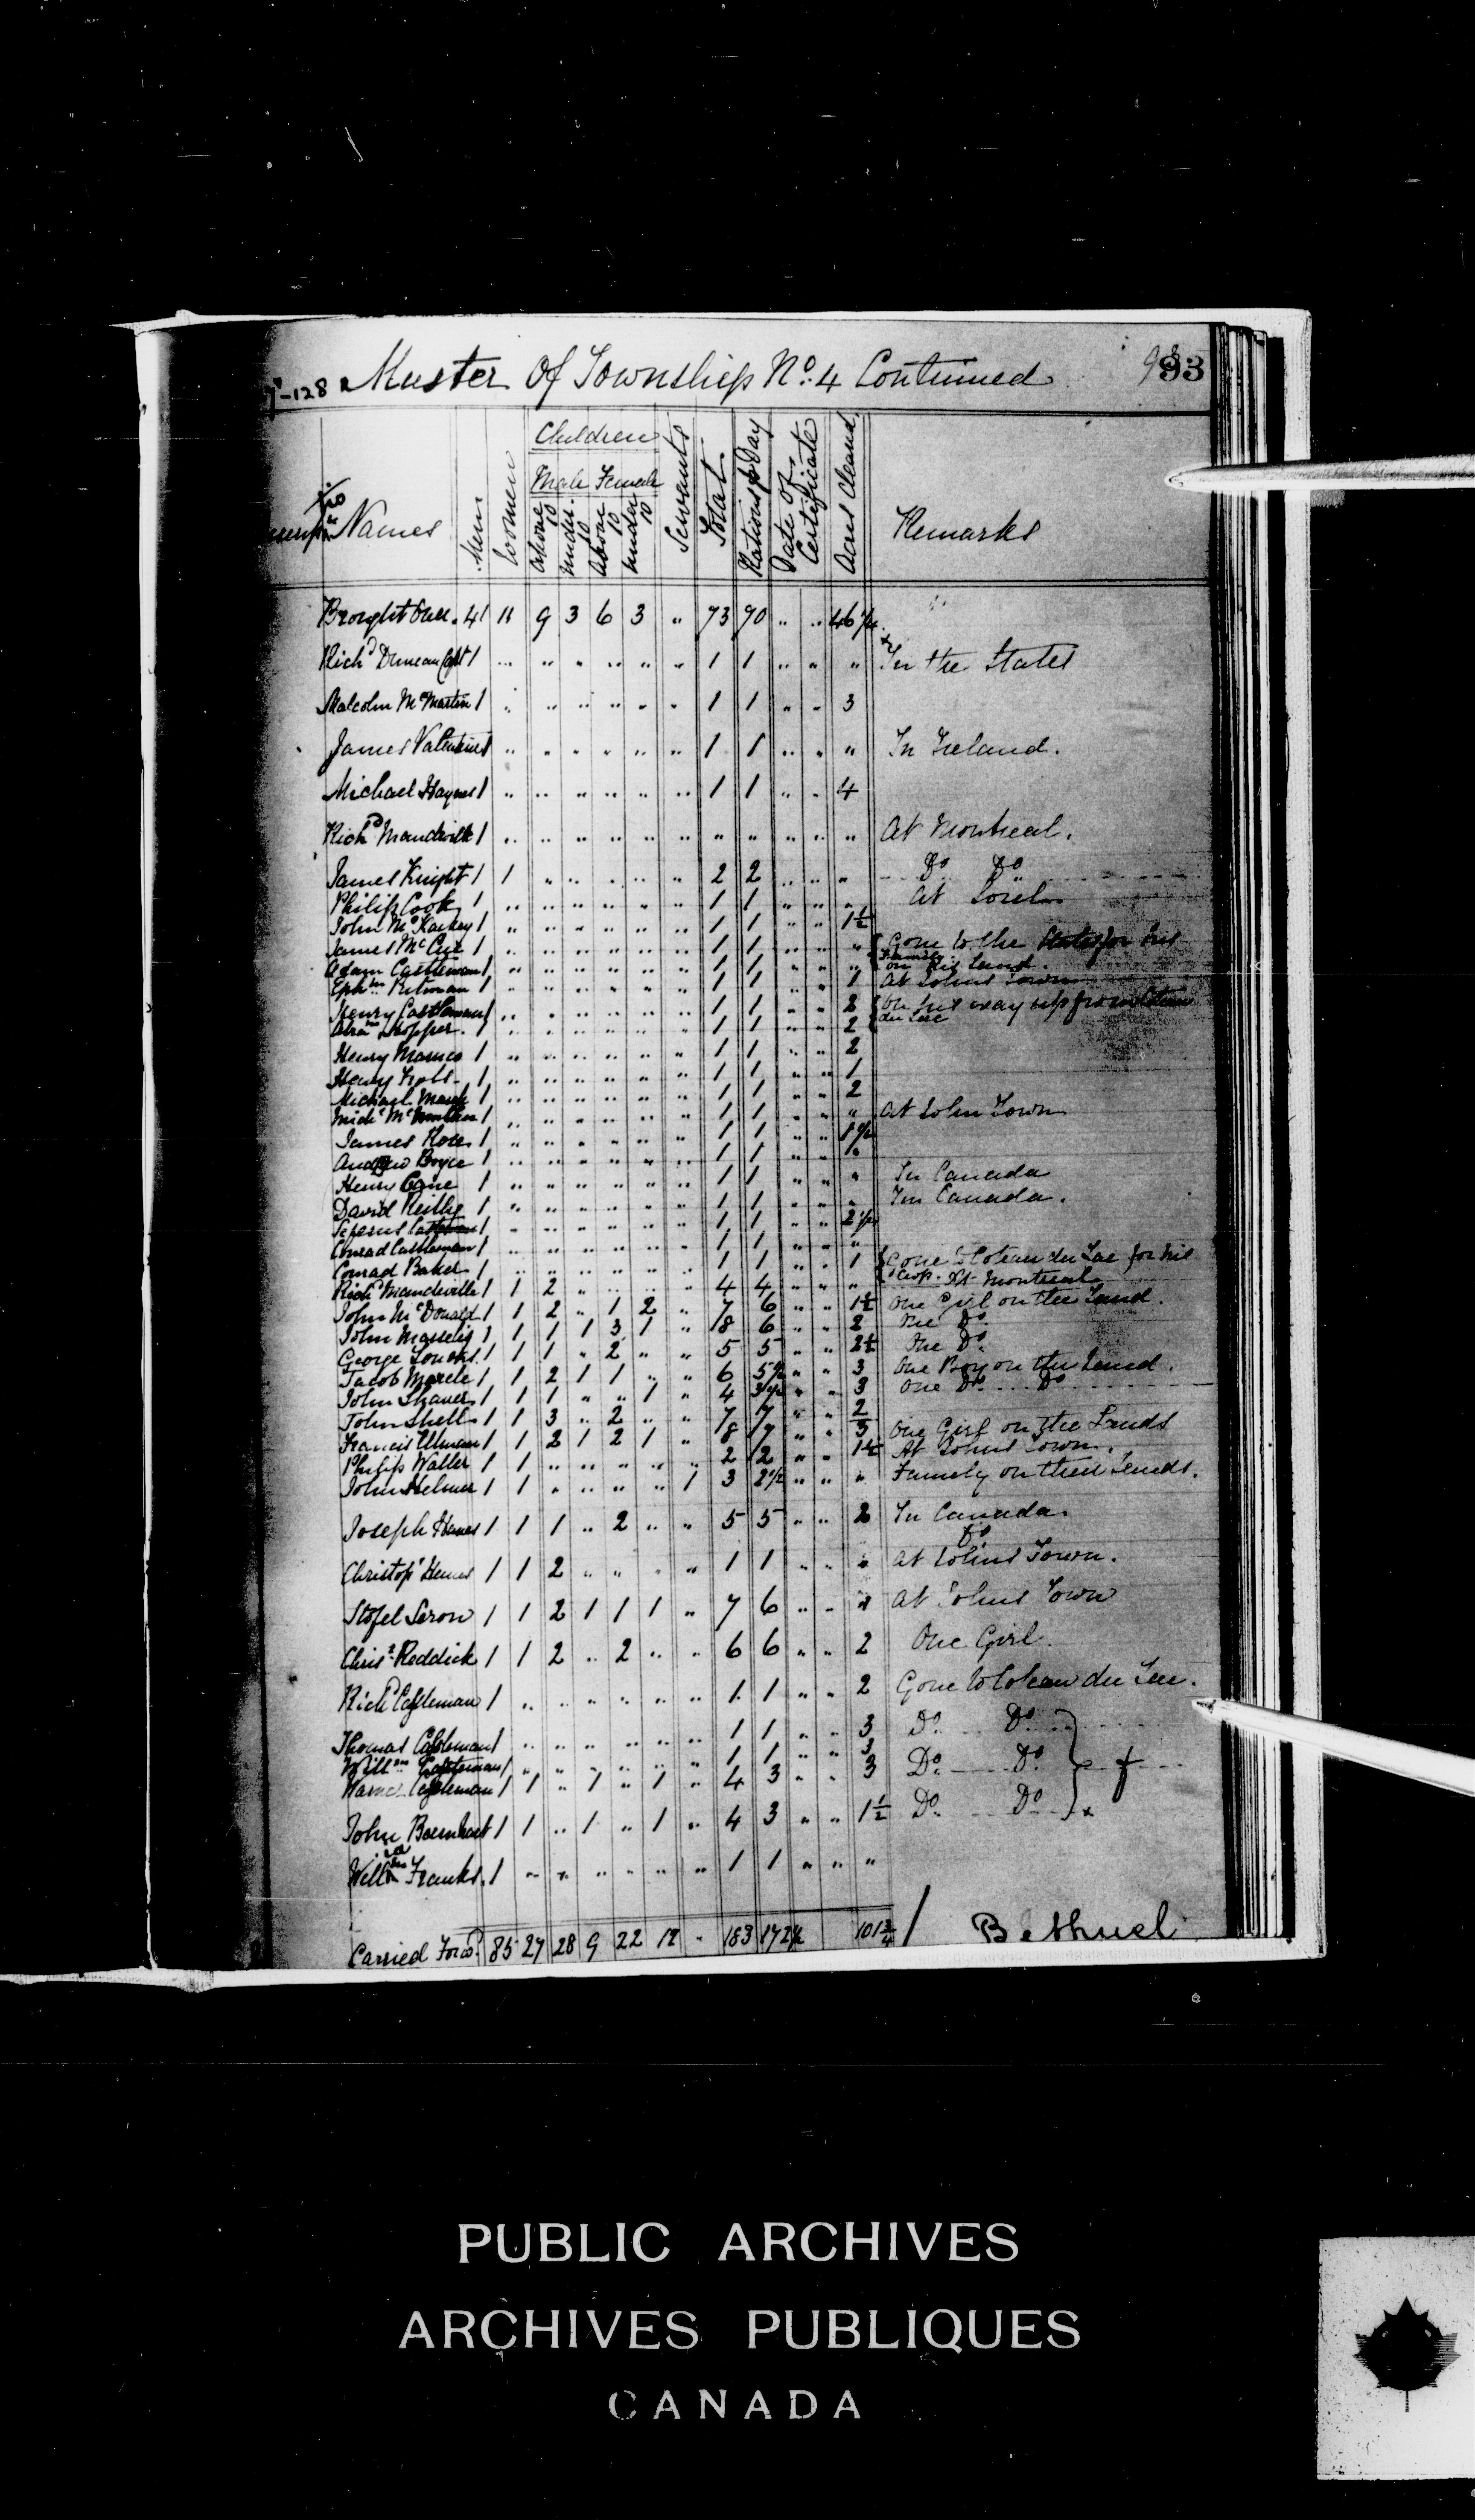 -128 Muster Of Township No. 4 Continued
93
Names Men Women Children Male above 10 under 10 Female above 10 under 10 Servants Total Rations pr Day Date of Certificate Acres Cleard Remarks
Brought Over. 41 11 9 3 6 3 " 73 70 " " 46 1/4
Richd Duncan Capt 1 " " " " " " 1 1 " " " In the States
Malcolm McMartin 1 " " " " " " 1 1 " " 3
James Valentine 1 " " " " " " 1 1 " " " In Ireland.
Michael Haynes 1 " " " " " " 1 1 " " 4
Richd Mandeville 1 " " " " " " " " " " " At Montreal.
James Knight 1 1 " " " " " 2 2 " " " Do Do
Philip Cook 1 " " " " " " 1 1 " " " At Sorel
John McKarkey 1 " " " " " " 1 1 " " 1 1/2
James McCue 1 " " " " " " 1 1 " " " Gone to the States for his Family
Adam Castleman 1 " " " " " " 1 1 " " " on his Land.
Ephm Pitman 1 " " " " " " 1 1 " " 1 At Johns Town
Henry Castleman 1 " " " " " " 1 1 " " 2 On his way up from Coteau du Lac
Abram Hopper. 1 " " " " " " 1 1 " " 2
Henry 1 " " " " " " 1 1 " " 2
Henry 1 " " " " " " 1 1 " " 1
Michael 1 " " " " " " 1 1 " " 2
Michl 1 " " " " " " 1 1 " " " At John Town
James Rose 1 " " " " " " 1 1 " " 1 1/2
Andrew Boyce 1 " " " " " " 1 1 " " 1
Henry 1 " " " " " " 1 1 " " " In Canada
David Reilly 1 " " " " " " 1 1 " " " In Canada.
Castleman 1 " " " " " " 1 1 " " 2 1/2
Conrad Castleman 1 " " " " " " 1 1 " " "
Conrad Baker 1 " " " " " " 1 1 " " 1 Gone to Coteau du Lac for his Crop.
Richd Mandeville 1 1 2 " " " " 4 4 " " " At Montreal
John McDonald 1 1 2 " 1 2 " 7 6 " " 1 1/2 One Girl on the Land.
John 1 1 1 1 3 1 " 8 6 " " 2 One Do.
George Loucks. 1 1 1 " 2 " " 5 5 " " 2 1/2 One Do.
Jacob Marcle 1 1 2 1 1 " " 6 5 1/2 " " 3 One Boy on the Land.
John Shaver 1 1 1 " " 1 " 4 3 1/2 " " 3 One Do Do
John Shell 1 1 3 " 2 " " 7 7 " " 2
Francis Ulman 1 1 2 1 2 1 " 8 7 " " 3 One Girl on the Lands
Philip Waller 1 1 " " " " " 2 2 " " 1 1/2 At Johns Town.
John Helmer 1 1 " " " " 1 3 2 1/2 " " " Family on their Lands.
Joseph Hanes 1 1 1 " 2 " " 5 5 " " 2 In Canada.
Do
Christopr Hanes 1 1 2 " " " " 1 1 " " " At Johns Town.
Stofel Seron 1 1 2 1 1 1 " 7 6 " " " At Johns Town
Christr Reddick 1 1 2 " 2 " " 6 6 " " 2 One Girl.
Richd Castleman 1 " " " " " " 1 1 " " 2 Gone to Coteau du Lac.
Thomas Castleman 1 " " " " " " 1 1 " " 3 Do Do
Willm Castleman 1 " " " " " " 1 1 " " 3 Do Do
Warner Castleman 1 1 " 1 " 1 " 4 3 " " 3 Do Do
John Barnhart 1 1 " 1 " 1 " 4 3 " " 1 1/2
Willm Franks. 1 " " " " " " 1 1 " " "
Carried Forwd. 85 27 28 9 22 12 " 183 172 1/2 101 3/4 / Bethuel
PUBLIC ARCHIVES
ARCHIVES PUBLIQUES
CANADA